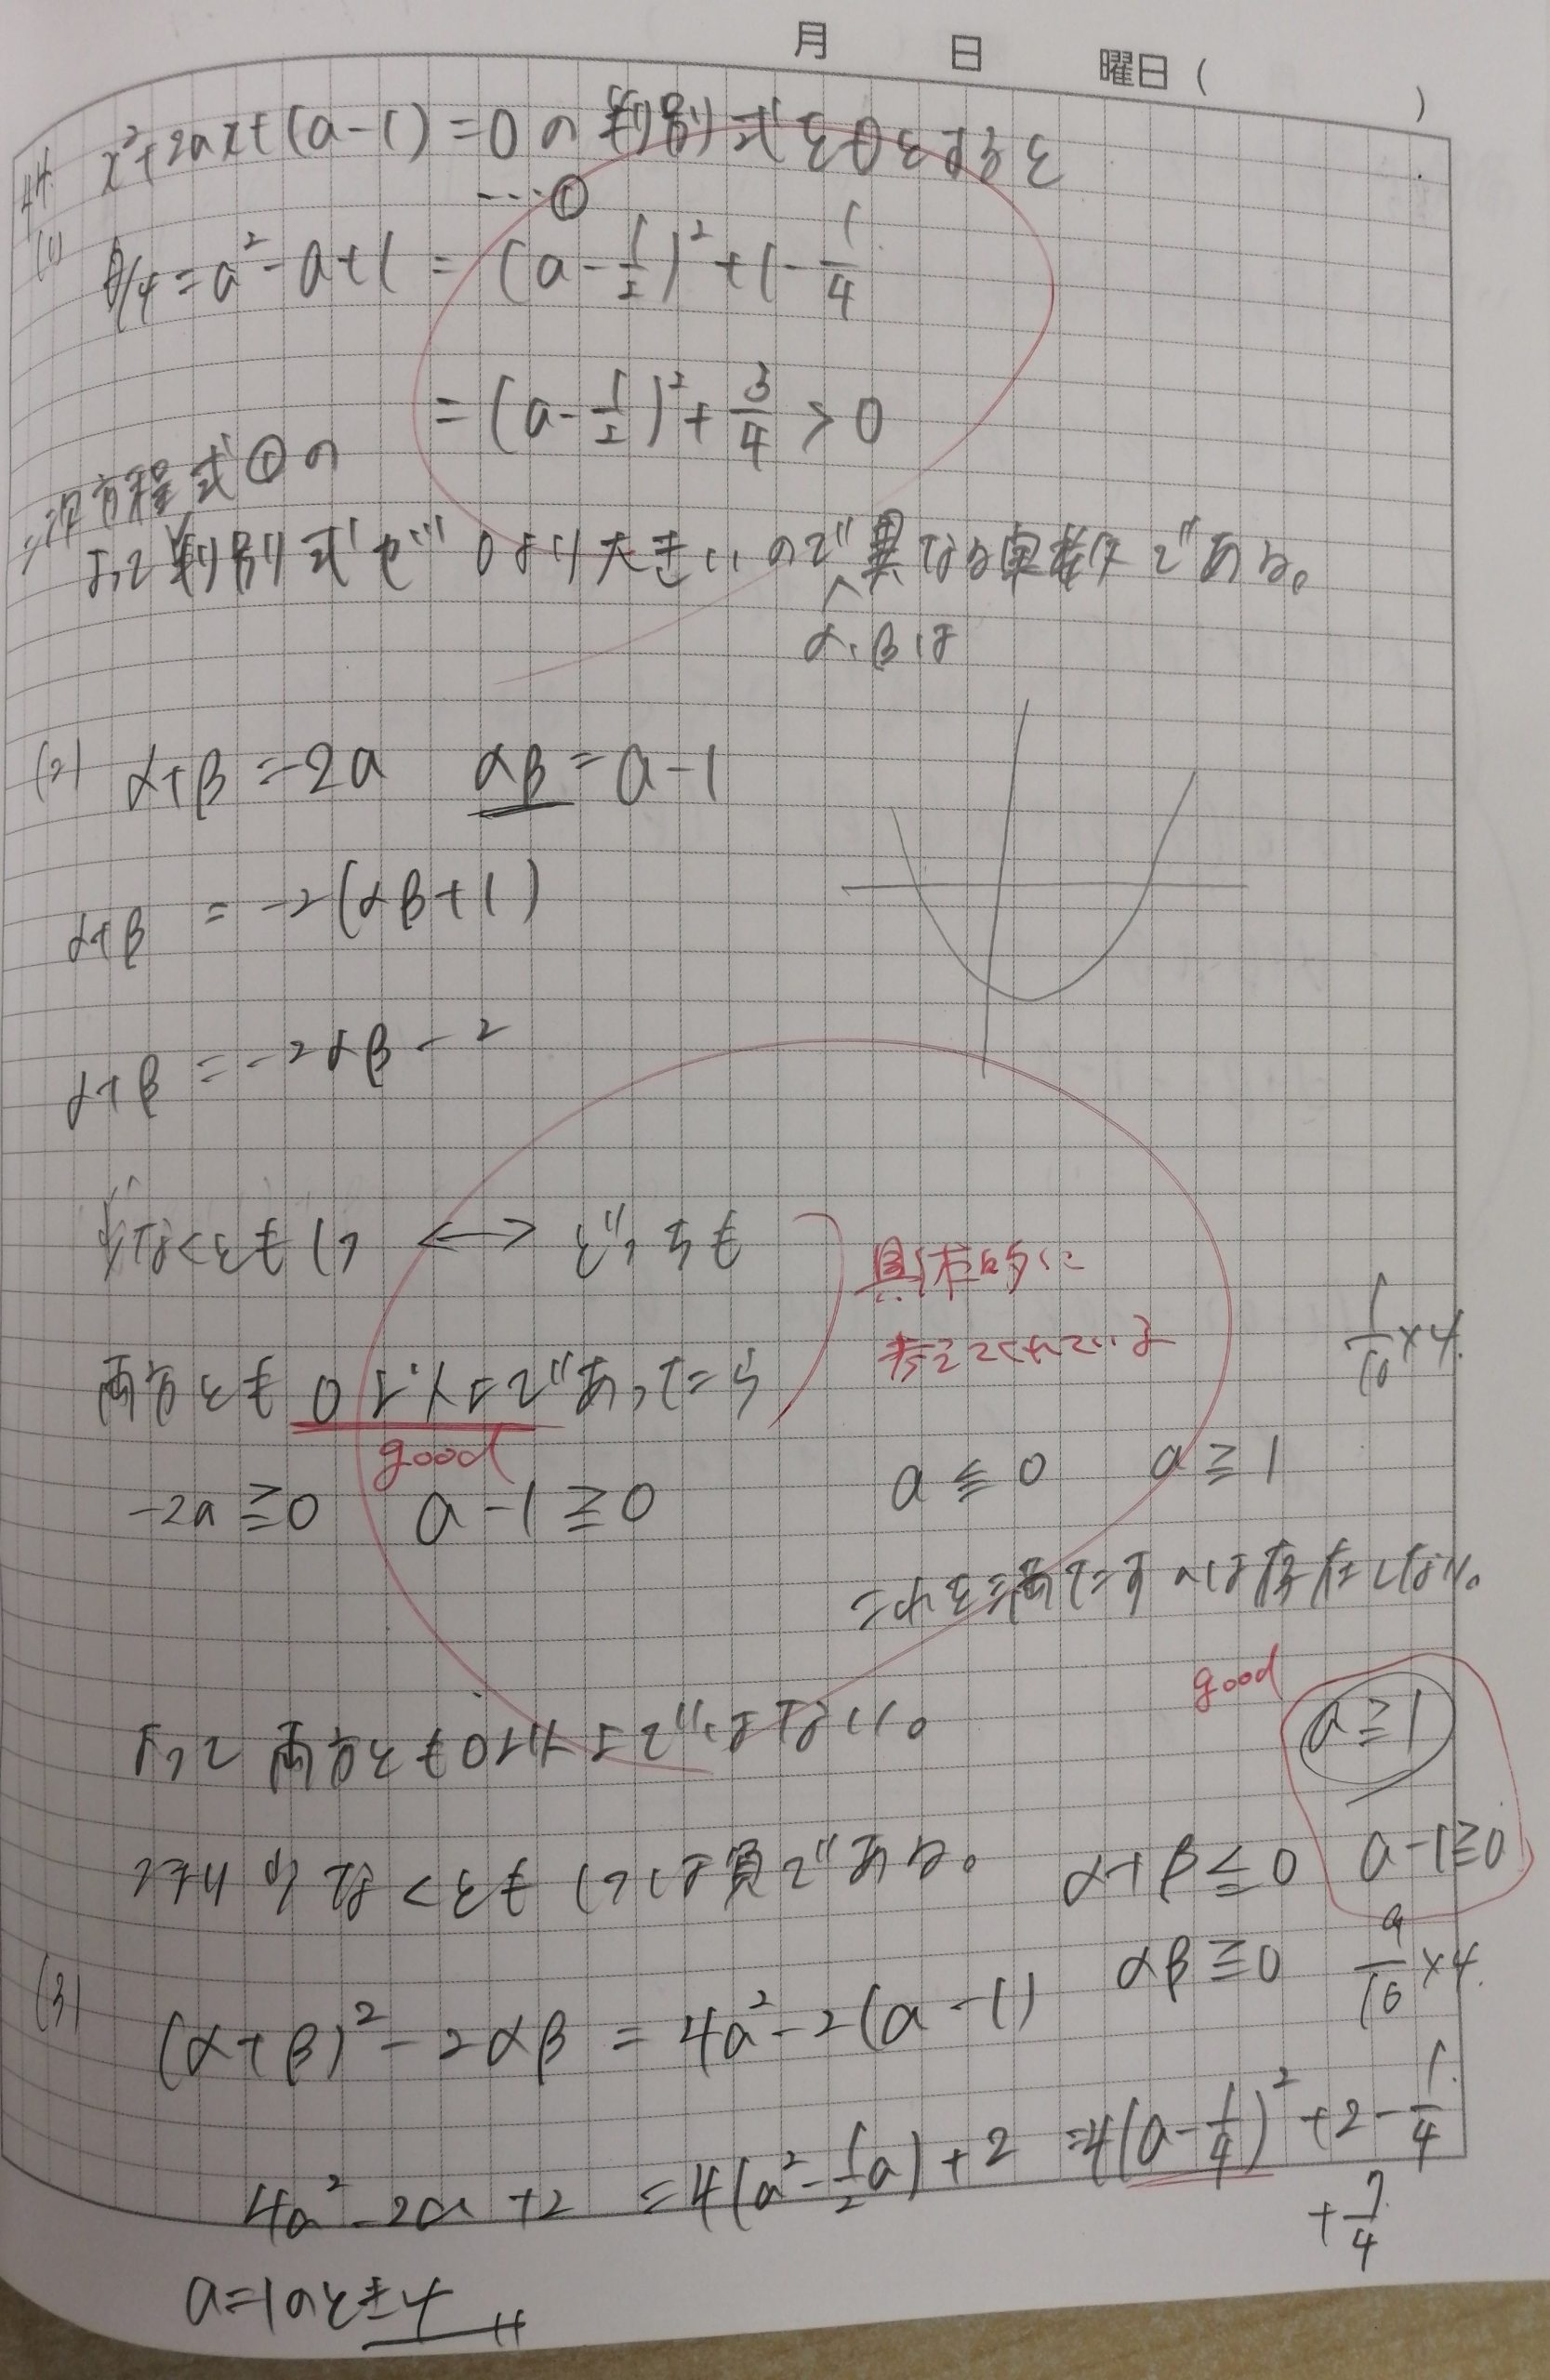 月 日 曜日 ( )
44.
(1) x²+2ax+(a-1)=0の判別式をDとすると
…①
D/4=a²-a+1=(a-1/2)²+1-1/4
=(a-1/2)²+3/4>0
二次方程式①の
よって判別式が0より大きいので異なる実数である。
α、βは
(2) α+β=-2a αβ=a-1
α+β=-2(αβ+1)
α+β=-2αβ-2
少なくとも1つ ⟷ どっちも
具体的に
考えてくれている
1/16×4
両方とも0以上であったら
good
-2a≧0 a-1≧0 a≦0 a≧1
これを満たすaは存在しない。
good
よって両方とも0以上ではない。 a≧1
つまり少なくとも1つは負である。 α+β≦0 a-1≧0
αβ≧0 9/16×4
(3) (α+β)²-2αβ=4a²-2(a-1)
4a²-2a+2=4(a²-1/2a)+2=4(a-1/4)²+2-1/4
+7/4
a=1のとき4